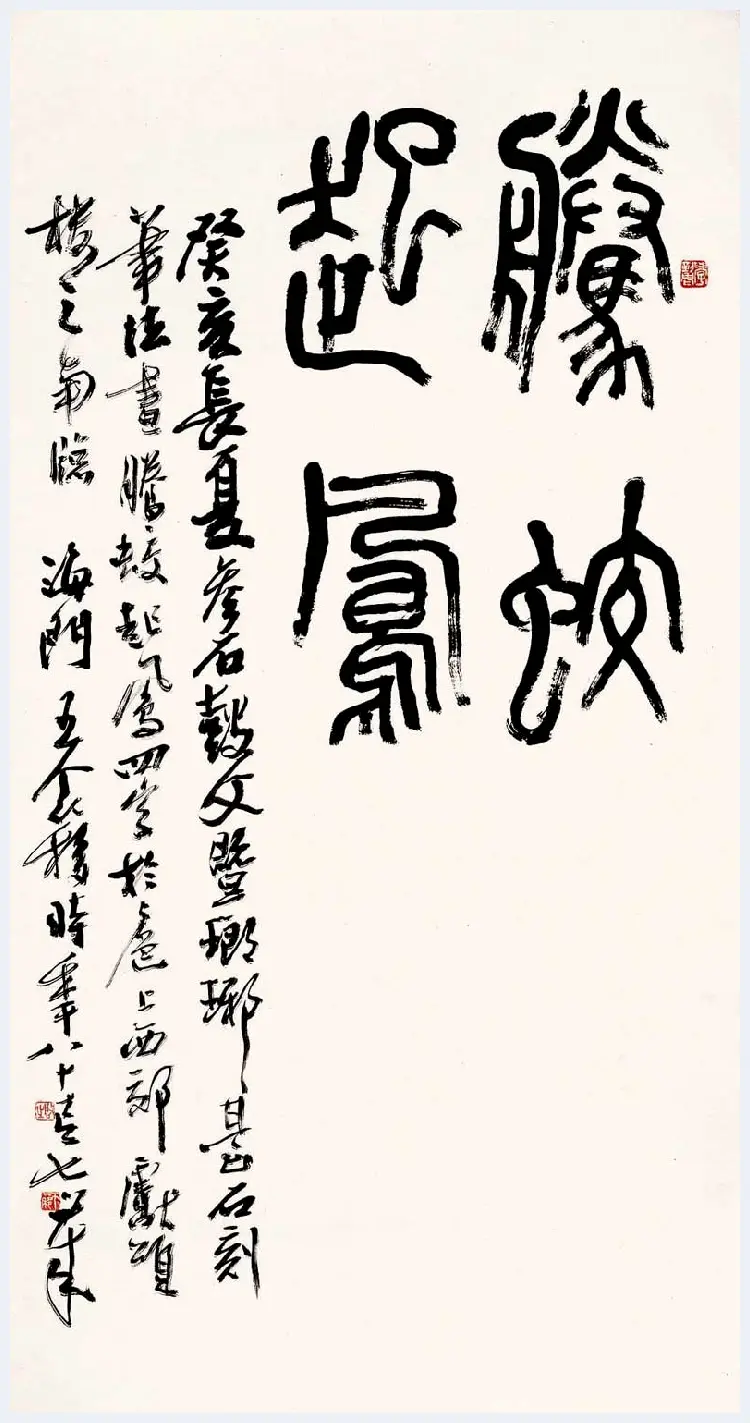 騰蛟
起鳳
癸亥長夏參石鼓文暨瑯琊臺石刻
筆法書騰蛟起鳳四字於扈上西郊獻頌
樓之南牖 海門王个簃時年八十七